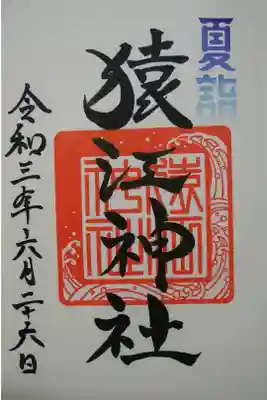 夏詣
猿江神社
猿江神社
令和三年六月二十六日